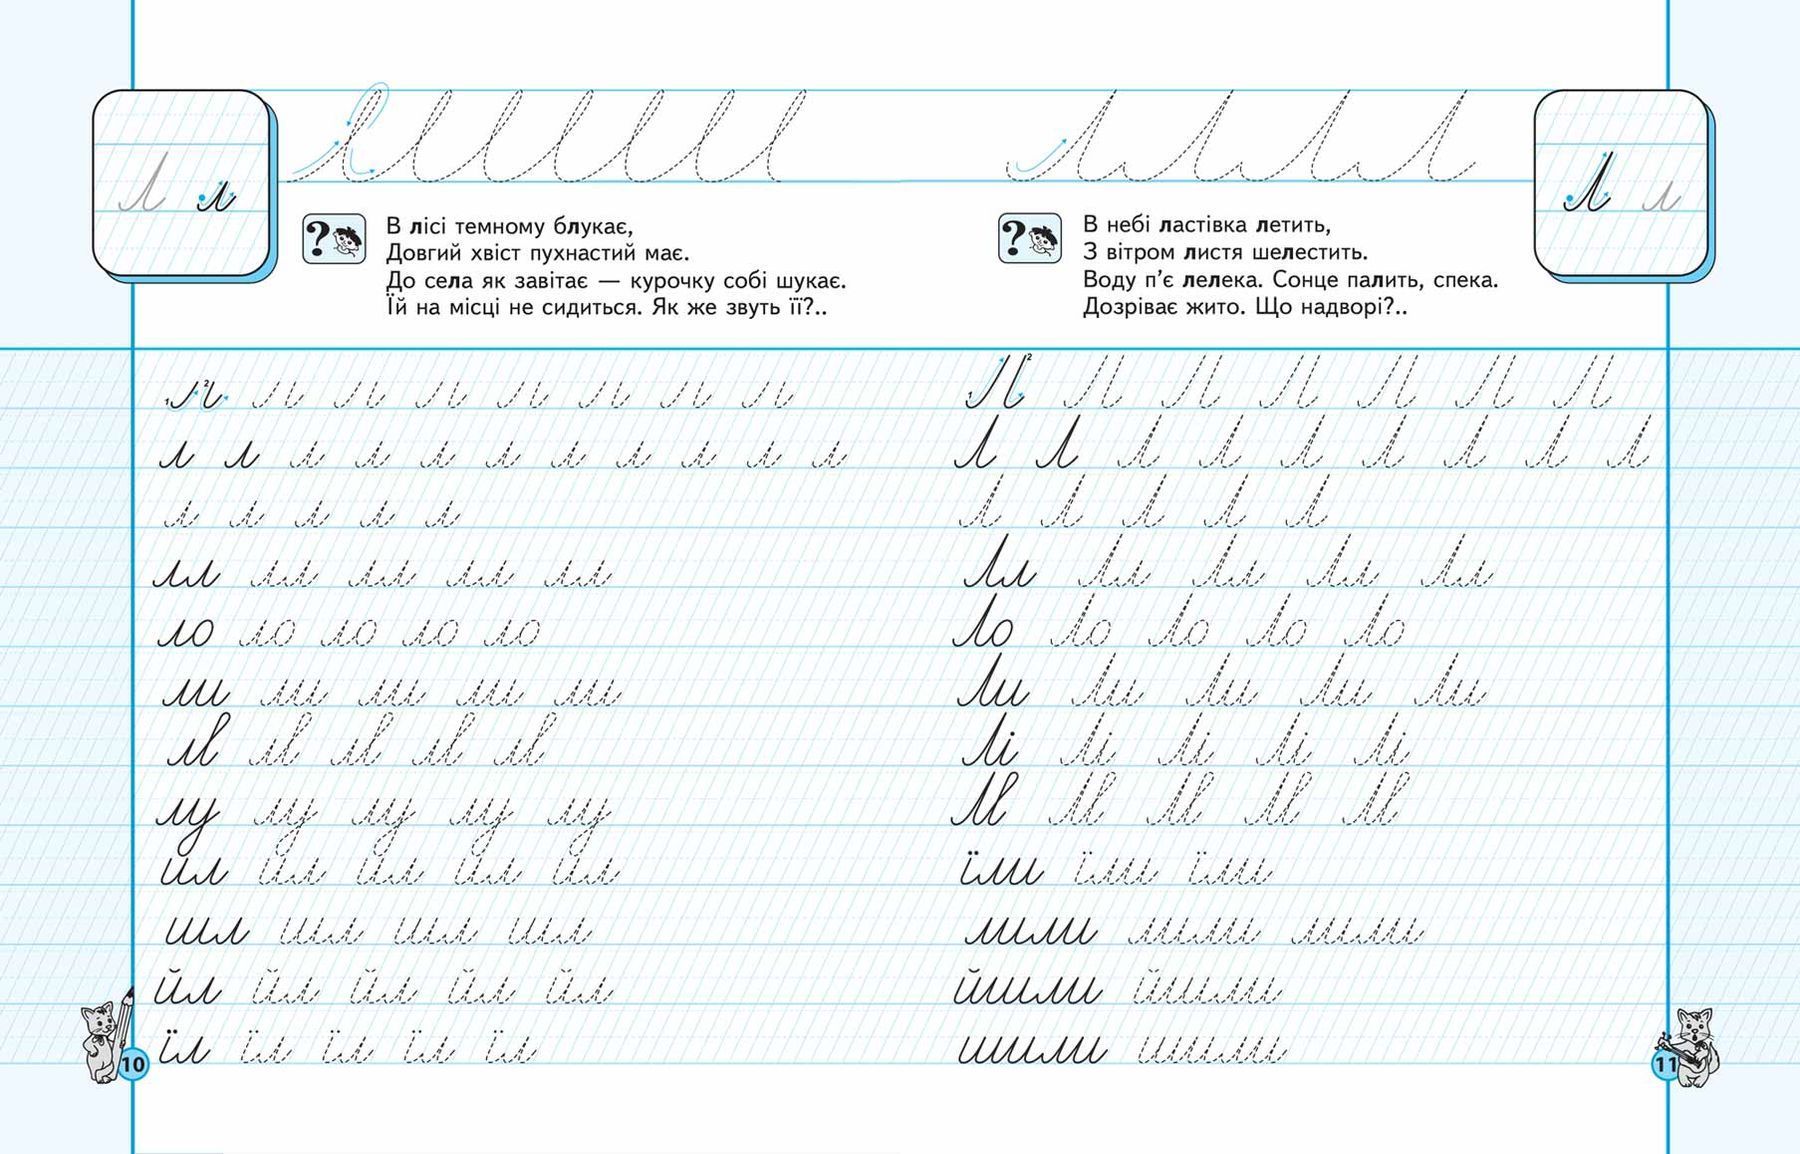 Л л
?
В лісі темному блукає,
Довгий хвіст пухнастий має.
До села як завітає — курочку собі шукає.
Їй на місці не сидиться. Як же звуть її?..
1 2
л л л л л л л л л л л
л л л л л
лл лл лл лл лл
ло ло ло ло ло
ли ли ли ли ли
лв лв лв лв лв
лу лу лу лу лу
ил ил ил ил ил
шл шл шл шл
йл йл йл йл йл
їл їл їл їл їл
10
Л л
?
В небі ластівка летить,
З вітром листя шелестить.
Воду п’є лелека. Сонце палить, спека.
Дозріває жито. Що надворі?..
1 2
Л Л Л Л Л Л Л Л Л
Л Л Л Л Л
Лл Лл Лл Лл Лл
Ло Ло Ло Ло Ло
Ли Ли Ли Ли Ли
Лі Лі Лі Лі Лі
Лв Лв Лв Лв Лв
їли їли їли
лили лили лили
йшли йшли
шили шили
11